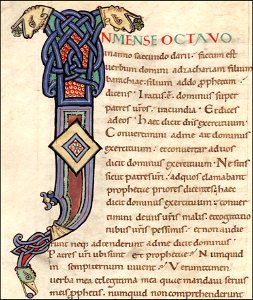 IN MENSE OCTAVO
inanno secundo darii. factum est
uerbum domini adzachariam filium
barachiae. filium addo prophetam
dicens; Iratus ē dominus super
patres urōs. iracundia; Et dices
adeos; Haec dicit dn̄s exercituum;
Convertimini adme ait dominus
exercituum. et conuertar aduos
dicit dominus exercituum; Ne sitis
sicut patres uri. adquos clamabant
prophetae priores dicentes; haec
dicit dominus exercituum; conuer
timini deuiis uris malis. et cogitatio
nibus uris pessimis. et non audie
runt neq; adtenderunt adme dicit dominus;
Patres uri ubi sunt et prophetae; Num
quid in sempiternum uiuent; Verumtamen
uerba mea et legitima mea quae mandaui seruis
meis prophetis. numquid non comprehenderunt